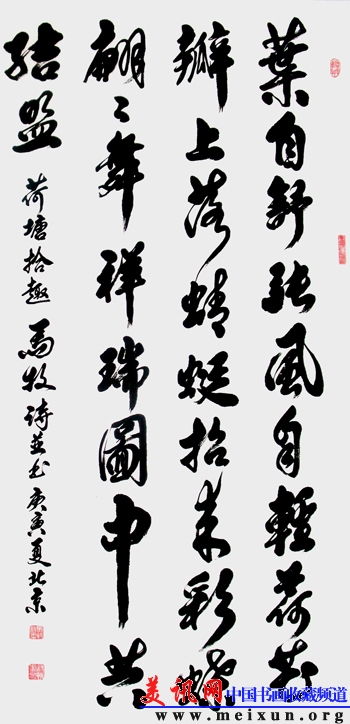 葉自舒張風自輕荷花
瓣上落蜻蜓招來彩蝶
翩〻舞祥瑞圖中共
結盟
荷塘拾趣 馬牧詩並書 庚寅夏北京
美讯网 中国书画收藏频道
www.meixun.org